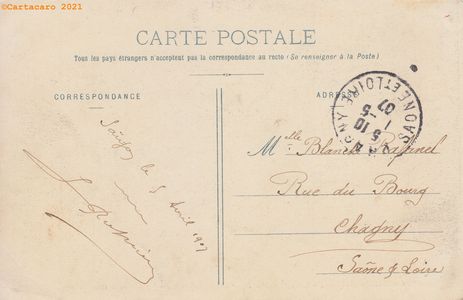 ©Cartacaro 2021
CARTE POSTALE
Tous les pays étrangers n'acceptent pas la correspondance au recto (Se renseigner à la Poste)
CORRESPONDANCE
ADRESSE
Saïgon le 5 Avril 1907
Mlle Blanche
Rue du Bourg
Chagny
Saône & Loire
CHAGNY
SAONE-ET-LOIRE
5 10
5
07